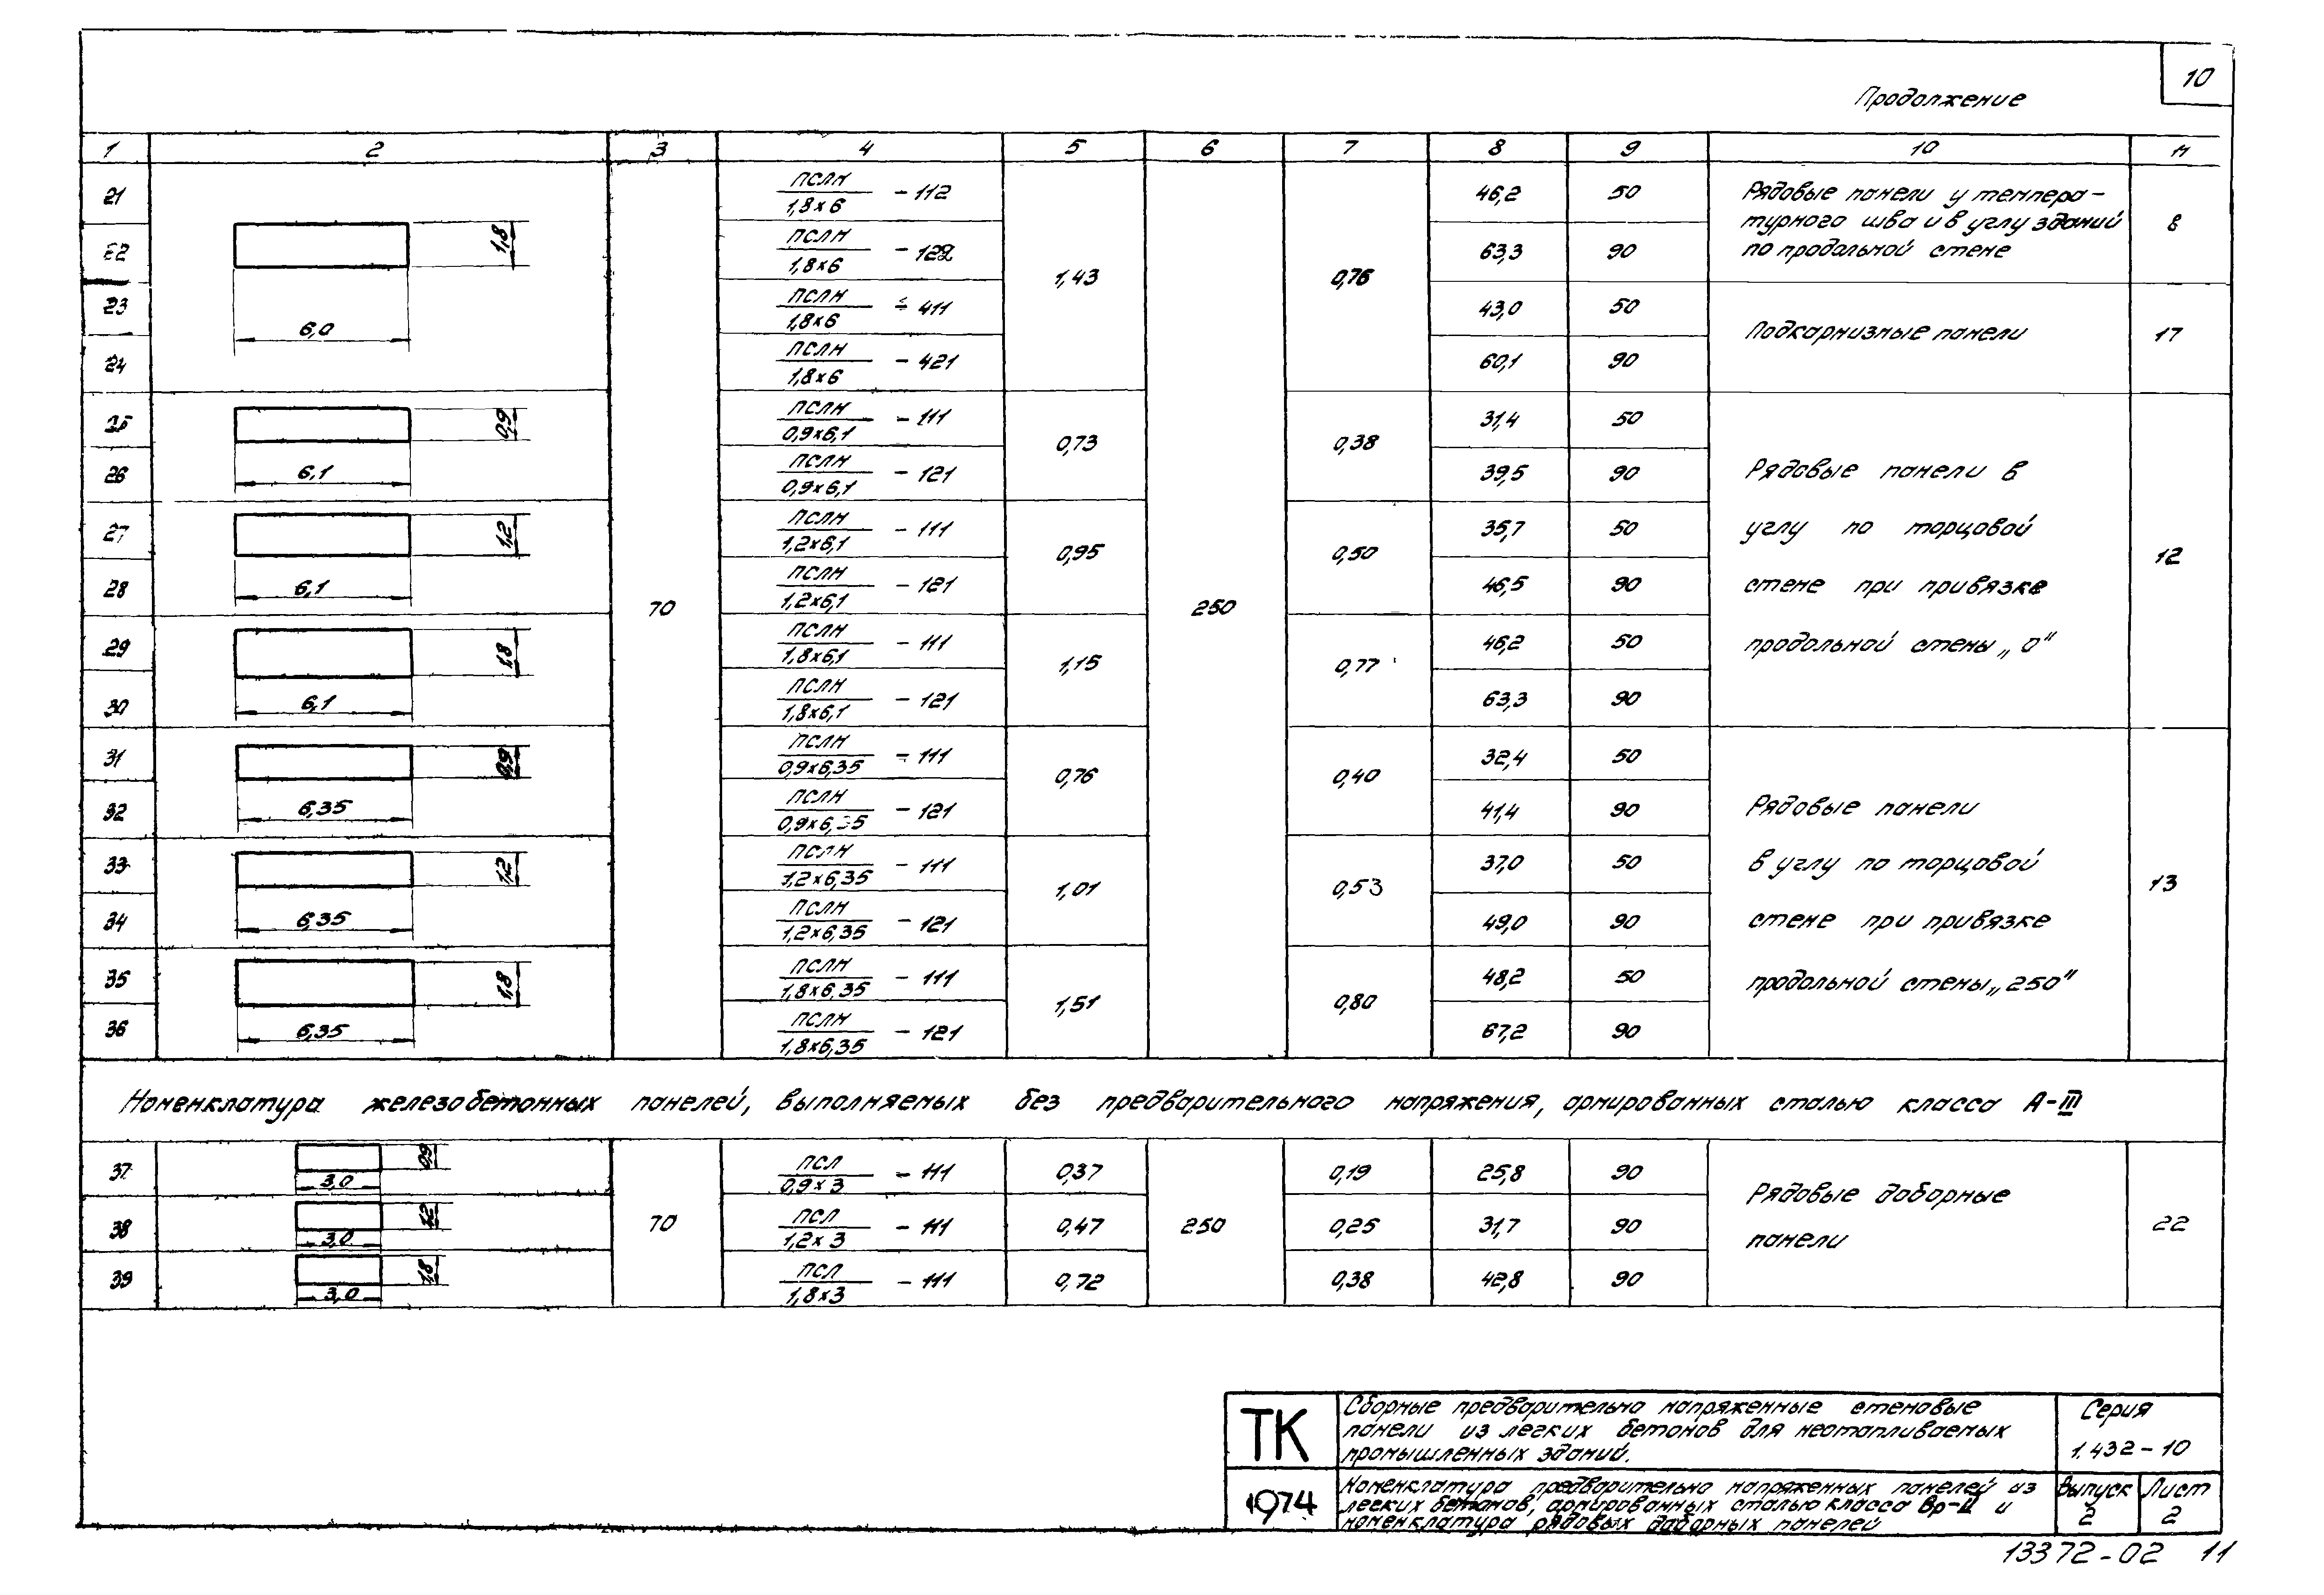 10
Продолжение
1 2 3 4 5 6 7 8 9 10 11
21 ПСЛН/1,8×6 – 112 46,2 50
22 ПСЛН/1,8×6 – 122 63,3 90
23 ПСЛН/1,8×6 – 411 43,0 50
24 ПСЛН/1,8×6 – 421 60,1 90
1,8
6,0
1,43
0,76
Рядовые панели у темпера-
турного шва и в углу зданий
по продольной стене
8
Подкарнизные панели
17
25 ПСЛН/0,9×6,1 – 111 31,4 50
26 ПСЛН/0,9×6,1 – 121 39,5 90
0,9
6,1
0,73
0,38
27 ПСЛН/1,2×6,1 – 111 35,7 50
28 ПСЛН/1,2×6,1 – 121 46,5 90
1,2
6,1
0,95
0,50
29 ПСЛН/1,8×6,1 – 111 46,2 50
30 ПСЛН/1,8×6,1 – 121 63,3 90
1,8
6,1
1,15
0,77
70
250
Рядовые панели в
углу по торцовой
стене при привязке
продольной стены „0"
12
31 ПСЛН/0,9×6,35 – 111 32,4 50
32 ПСЛН/0,9×6,35 – 121 41,4 90
0,9
6,35
0,76
0,40
33 ПСЛН/1,2×6,35 – 111 37,0 50
34 ПСЛН/1,2×6,35 – 121 49,0 90
1,2
6,35
1,01
0,53
35 ПСЛН/1,8×6,35 – 111 48,2 50
36 ПСЛН/1,8×6,35 – 121 67,2 90
1,8
6,35
1,51
0,80
Рядовые панели
в углу по торцовой
стене при привязке
продольной стены „250"
13
Номенклатура железобетонных панелей, выполняемых без предварительного напряжения, армированных сталью класса А-III
37 0,9 3,0 ПСЛ/0,9×3 – 111 0,37 0,19 25,8 90
38 1,2 3,0 ПСЛ/1,2×3 – 111 0,47 0,25 31,7 90
39 1,8 3,0 ПСЛ/1,8×3 – 111 0,72 0,38 42,8 90
70
250
Рядовые доборные
панели
22
ТК
Сборные предварительно напряженные стеновые
панели из легких бетонов для неотапливаемых
промышленных зданий.
Серия
1.432-10
1974
Номенклатура предварительно напряженных панелей из
легких бетонов, армированных сталью класса Вр-II и
номенклатура рядовых доборных панелей
Выпуск
2
Лист
2
13372-02 11